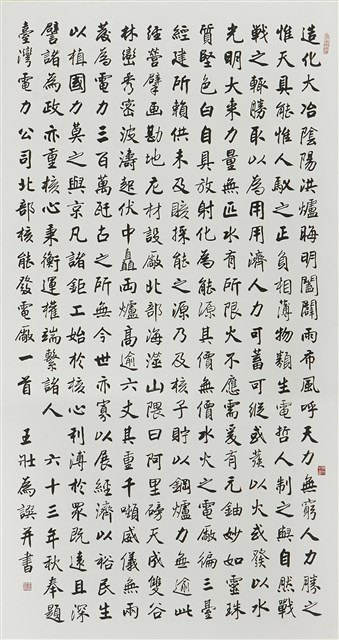 造化大冶陰陽洪爐晦明闔闢雨布風呼天力無窮人力勝之
惟天具能惟人馭之正負相薄物類生電哲人制之與自然戰
戰之輒勝取以為用用濟人力可蓄可縱或蒸以火或發以水
光明大來力量無匹水有所限火不應需爰有元鈾妙如靈珠
質堅色白自具放射化為能源其價無價水火之電廠徧三臺
經建所賴供未及賅採能之源乃及核子貯以鋼爐力無逾此
經營擘畫勘地庀材設廠北部海澨山隈曰阿里磅天成雙谷
林巒秀密波濤起伏中矗兩爐高逾六丈其重千噸威儀無兩
茲為電力三百萬瓩古之所無今世亦寡以展經濟以裕民生
以植國力莫之與京凡諸鉅工始於核心利溥於眾既遠且深
譬諸為政亦重核心秉衡運權端繫諸人 六十三年秋奉題
臺灣電力公司北部核能發電廠一首 王壯為譔并書